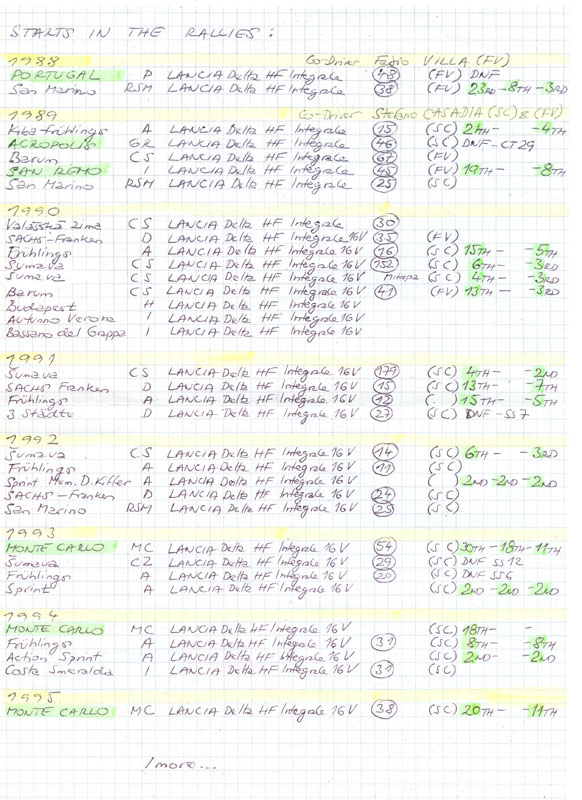 STARTS IN THE RALLIES:
1988 Co-Driver Fabio VILLA (FV)
PORTUGAL P LANCIA Delta HF Integrale 48 (FV) DNF
San Marino RSM LANCIA Delta HF Integrale 38 (FV) 23RD-8TH-3RD
1989 Co-Driver Stefano CASADIA (SC) & (FV)
Frühlings A LANCIA Delta HF Integrale 15 (SC) 24TH- -4TH
ACROPOLIS GR LANCIA Delta HF Integrale 46 (SC) DNF-CT29
Barum CS LANCIA Delta HF Integrale 67 (FV)
SAN REMO I LANCIA Delta HF Integrale 45 (FV) 19TH- -8TH
San Marino RSM LANCIA Delta HF Integrale 25 (SC)
1990
Valašská zima CS LANCIA Delta HF Integrale 30
SACHS-Franken D LANCIA Delta HF Integrale 16V 35 (FV)
Frühlings A LANCIA Delta HF Integrale 16V 16 (SC) 15TH- -5TH
Šumava CS LANCIA Delta HF Integrale 16V 152 (SC) 6TH- -3RD
Šumava CS LANCIA Delta HF Integrale 16V Mitropa (SC) 4TH- -3RD
Barum CS LANCIA Delta HF Integrale 16V 41 (FV) 13TH- -3RD
Budapest H LANCIA Delta HF Integrale 16V
Autunno Verona I LANCIA Delta HF Integrale 16V
Bassano del Grappa I LANCIA Delta HF Integrale 16V
1991
Šumava CS LANCIA Delta HF Integrale 16V 179 (SC) 4TH- -2ND
SACHS Franken D LANCIA Delta HF Integrale 16V 15 (SC) 13TH- -7TH
Frühlings A LANCIA Delta HF Integrale 16V 12 ( 15TH- -5TH
3 Städte D LANCIA Delta HF Integrale 16V 27 (SC) DNF-SS7
1992
Šumava CS LANCIA Delta HF Integrale 16V 14 (SC) 6TH- -3RD
Frühlings A LANCIA Delta HF Integrale 16V 11 (SC)
Sprint Mem. D. A LANCIA Delta HF Integrale 16V ( ) 2ND-2ND-2ND
SACHS-Franken D LANCIA Delta HF Integrale 16V 24 (SC)
San Marino RSM LANCIA Delta HF Integrale 16V 25 (SC)
1993
MONTE CARLO MC LANCIA Delta HF Integrale 16V 54 (SC) 30TH-18TH-11TH
Šumava CZ LANCIA Delta HF Integrale 16V 29 (SC) DNF SS12
Frühlings A LANCIA Delta HF Integrale 16V 20 (SC) DNF SS6
Sprint A LANCIA Delta HF Integrale 16V (SC) 2ND-2ND-2ND
1994
MONTE CARLO MC LANCIA Delta HF Integrale 16V (SC) 18TH- -
Frühlings A LANCIA Delta HF Integrale 16V 31 (SC) 8TH- -8TH
Action Sprint A LANCIA Delta HF Integrale 16V (SC) 2ND- -2ND
Costa Smeralda I LANCIA Delta HF Integrale 16V 31 (SC)
1995
MONTE CARLO MC LANCIA Delta HF Integrale 16V 38 (SC) 20TH- -11TH
/more...